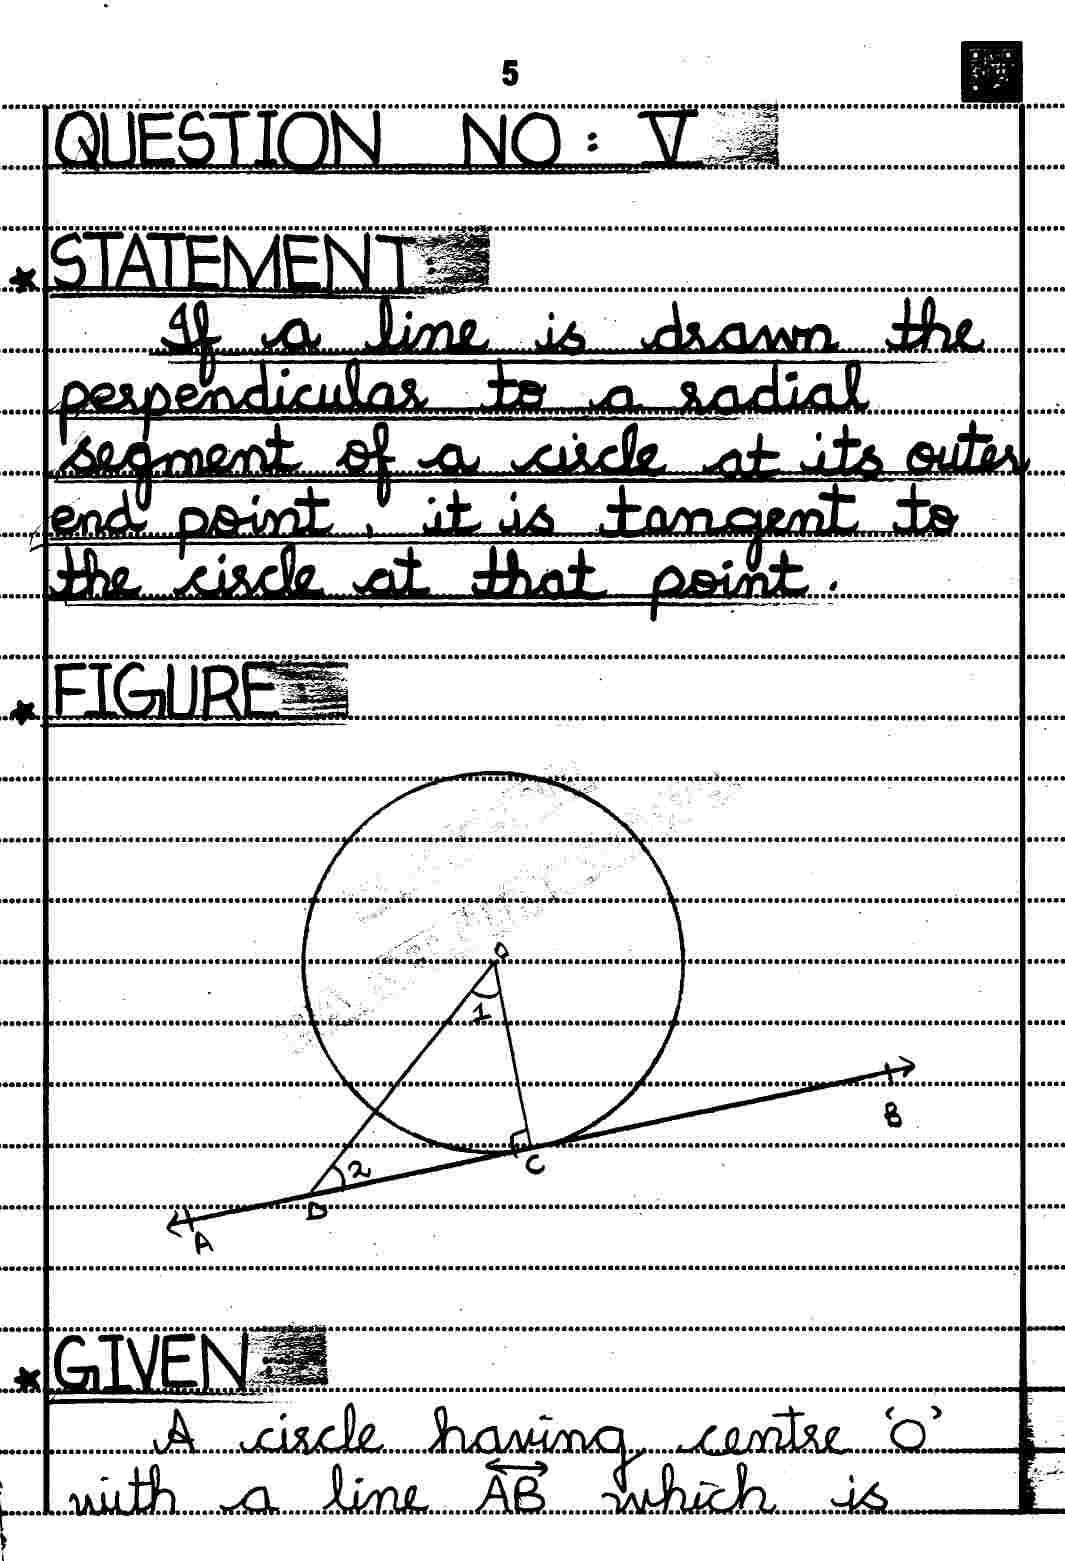 5
QUESTION NO: V
STATEMENT:
If a line is drawn the
perpendicular to a radial
segment of a circle at its outer
end point, it is tangent to
the circle at that point.
FIGURE
O
1
B
2
C
D
A
GIVEN:
A circle having centre 'O'
with a line AB which is